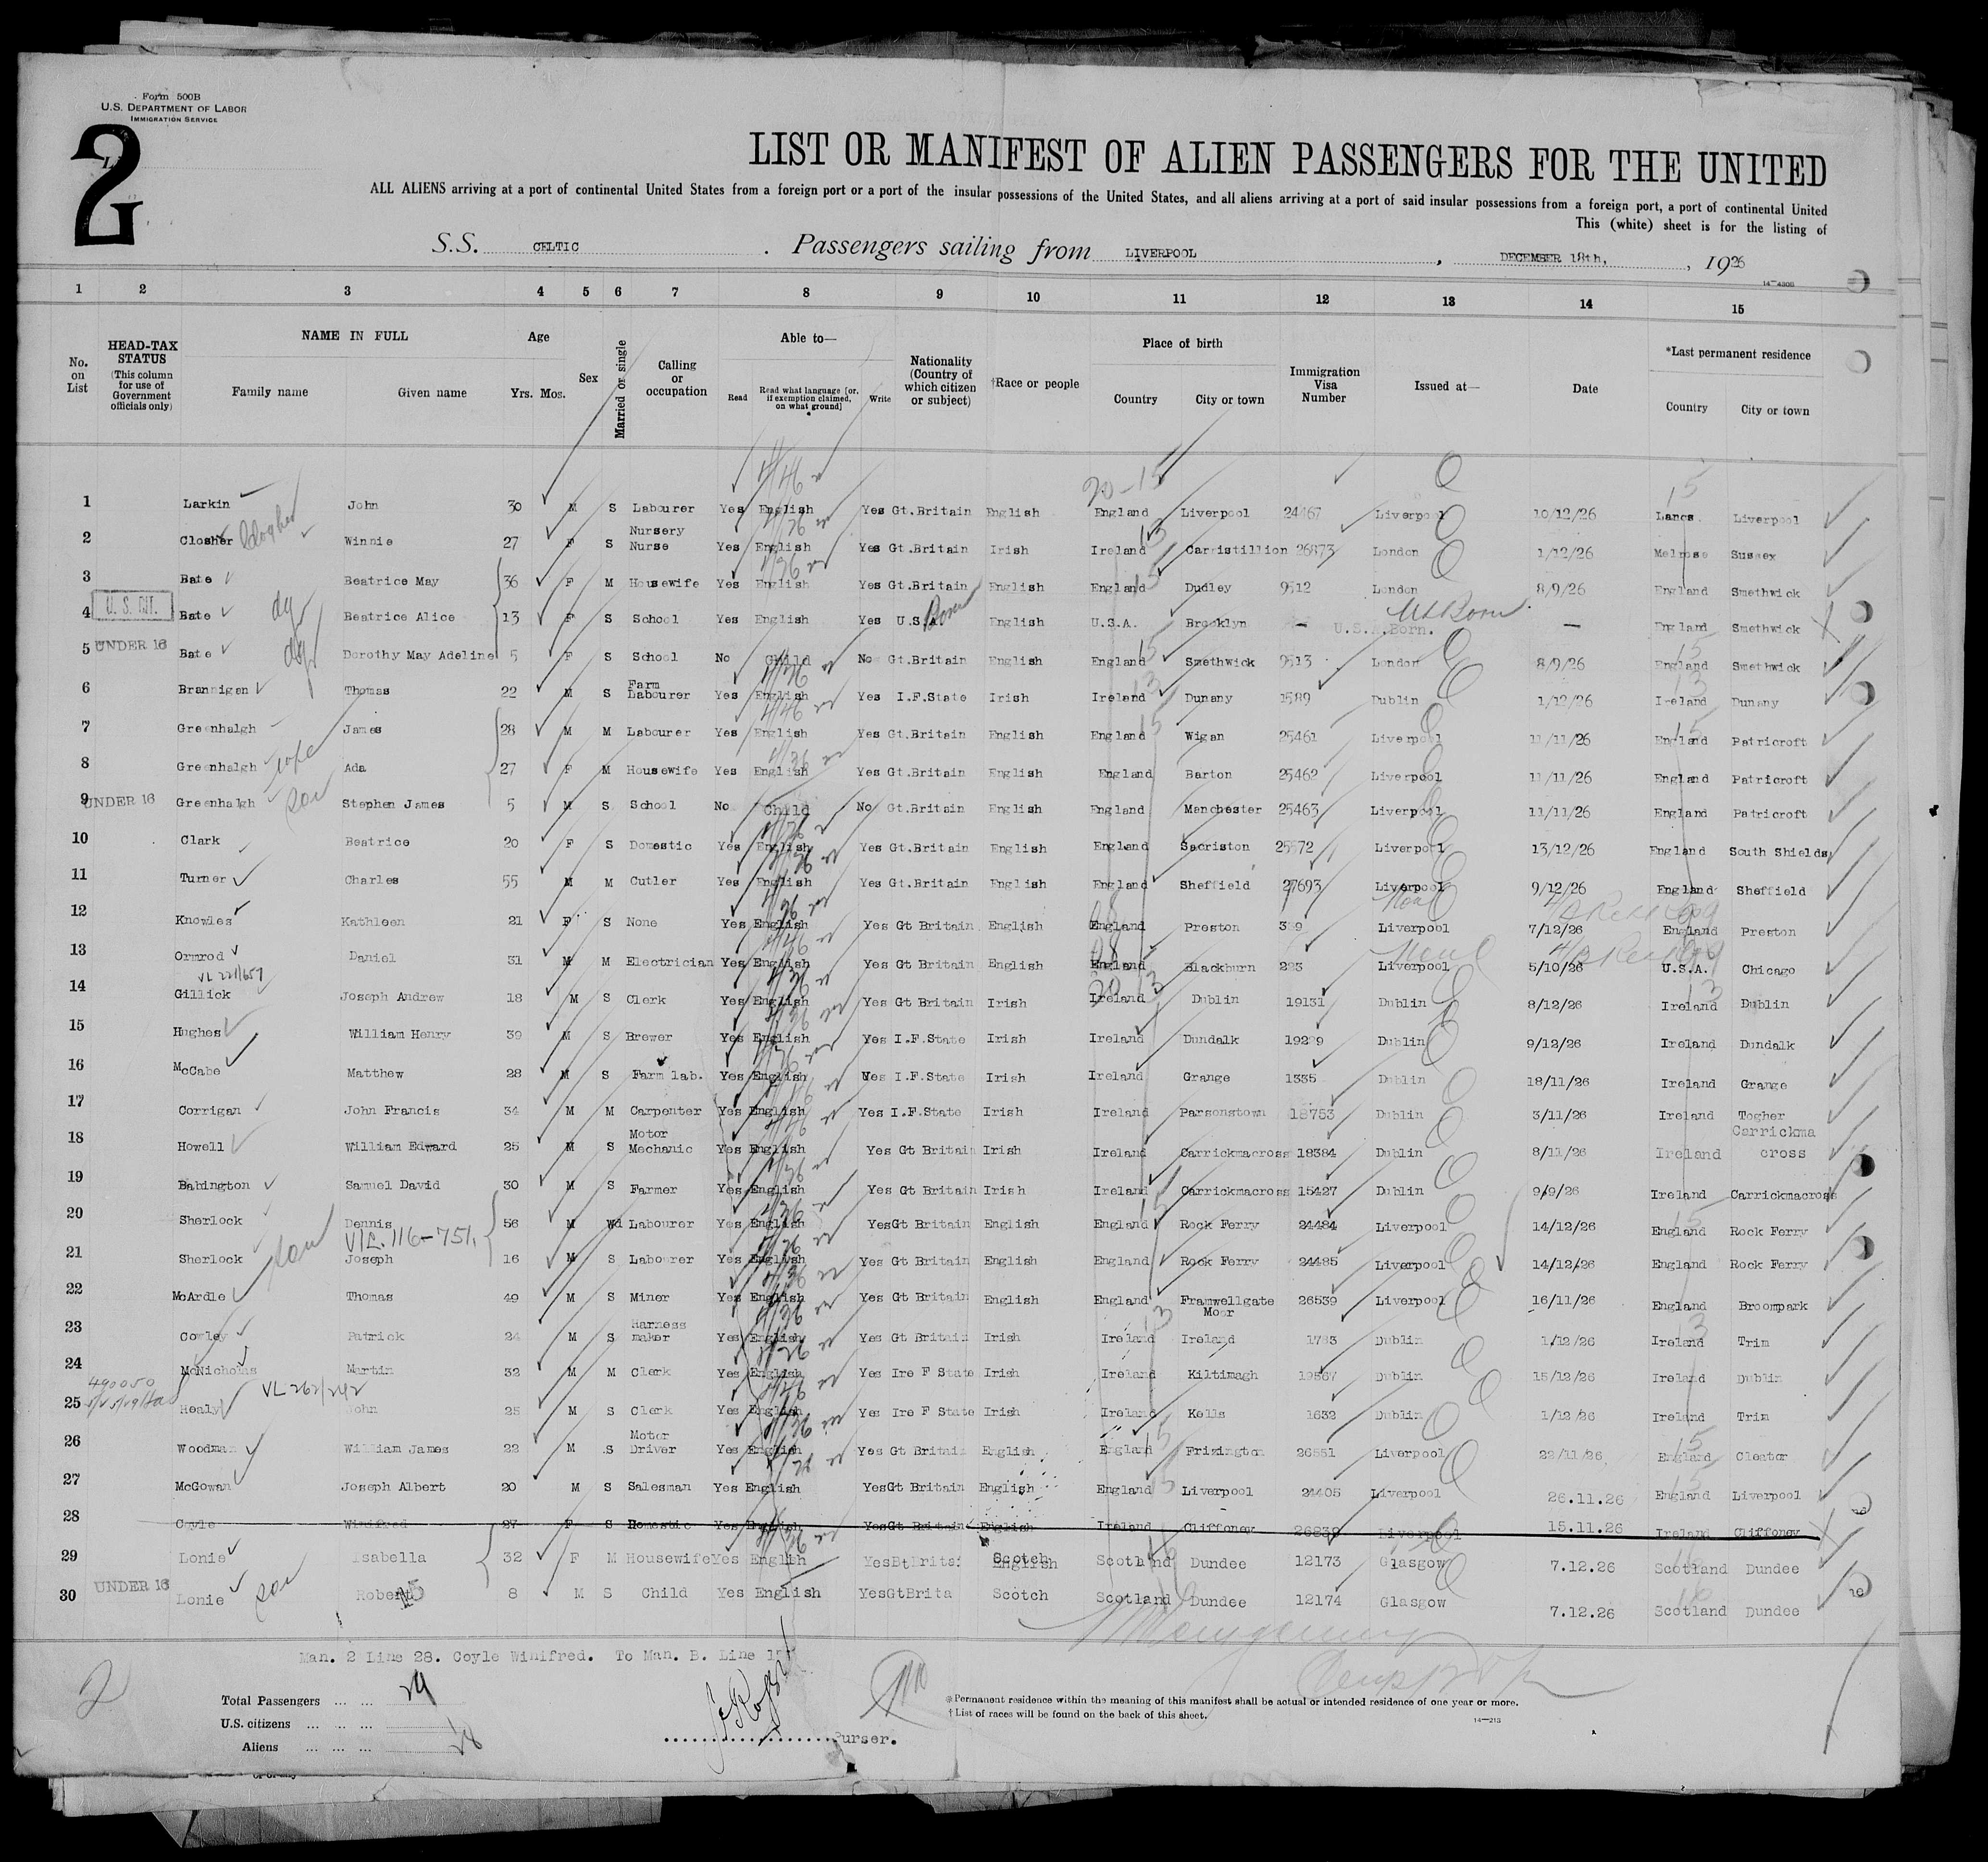 Form 500B
U.S. DEPARTMENT OF LABOR
IMMIGRATION SERVICE
2
LIST OR MANIFEST OF ALIEN PASSENGERS FOR THE UNITED
ALL ALIENS arriving at a port of continental United States from a foreign port or a port of the insular possessions of the United States, and all aliens arriving at a port of said insular possessions from a foreign port, a port of continental United
This (white) sheet is for the listing of
S.S. CELTIC. Passengers sailing from LIVERPOOL, DECEMBER 18th, 1926
14—4303
1 2 3 4 5 6 7 8 9 10 11 12 13 14 15
No. on List
HEAD-TAX STATUS (This column for use of Government officials only)
NAME IN FULL
Family name Given name
Age
Yrs. Mos.
Sex
Married or single
Calling or occupation
Able to—
Read Read what language [or, if exemption claimed, on what ground] Write
Nationality (Country of which citizen or subject)
†Race or people
Place of birth
Country City or town
Immigration Visa Number
Issued at—
Date
*Last permanent residence
Country City or town
1 Larkin John 30 M S Labourer Yes English Yes Gt.Britain English England Liverpool 24467 Liverpool 10/12/26 Lancs Liverpool
2 Closher Clogher Winnie 27 F S Nursery Nurse Yes English Yes Gt.Britain Irish Ireland Carristillion 26873 London 1/12/26 Melrose Sussex
3 Bate Beatrice May 36 F M Housewife Yes English Yes Gt.Britain English England Dudley 9512 London 8/9/26 England Smethwick
4 U.S. CIT. Bate Beatrice Alice 13 F S School Yes English Yes U.S.A. Born English U.S.A. Brooklyn — U.S.A.Born. US Born — England Smethwick
5 UNDER 16 Bate Dorothy May Adeline 5 F S School No Child No Gt.Britain English England Smethwick 9513 London 8/9/26 England Smethwick
6 Brannigan Thomas 22 M S Farm Labourer Yes English Yes I.F.State Irish Ireland Dunany 1589 Dublin 1/12/26 Ireland Dunany
7 Greenhalgh James 28 M M Labourer Yes English Yes Gt.Britain English England Wigan 25461 Liverpool 11/11/26 England Patricroft
8 Greenhalgh wife Ada 27 F M Housewife Yes English Yes Gt.Britain English England Barton 25462 Liverpool 11/11/26 England Patricroft
9 UNDER 16 Greenhalgh son Stephen James 5 M S School No Child No Gt.Britain English England Manchester 25463 Liverpool 11/11/26 England Patricroft
10 Clark Beatrice 20 F S Domestic Yes English Yes Gt.Britain English England Sacriston 25572 Liverpool 13/12/26 England South Shields
11 Turner Charles 55 M M Cutler Yes English Yes Gt.Britain English England Sheffield 27693 Liverpool 9/12/26 England Sheffield
12 Knowles Kathleen 21 F S None Yes English Yes Gt Britain English England Preston 389 Liverpool 7/12/26 England Preston
13 Ormrod Daniel 31 M M Electrician Yes English Yes Gt Britain English England Blackburn 223 Liverpool 5/10/26 U.S.A. Chicago
14 Gillick Joseph Andrew 18 M S Clerk Yes English Yes Gt Britain Irish Ireland Dublin 19131 Dublin 8/12/26 Ireland Dublin
15 Hughes William Henry 39 M S Brewer Yes English Yes I.F.State Irish Ireland Dundalk 19229 Dublin 9/12/26 Ireland Dundalk
16 McCabe Matthew 28 M S Farm lab. Yes English Yes I.F.State Irish Ireland Grange 1335 Dublin 18/11/26 Ireland Grange
17 Corrigan John Francis 34 M M Carpenter Yes English Yes I.F.State Irish Ireland Parsonstown 18753 Dublin 3/11/26 Ireland Togher
18 Howell William Edward 25 M S Motor Mechanic Yes English Yes Gt Britain Irish Ireland Carrickmacross 18384 Dublin 8/11/26 Ireland Carrickma cross
19 Babington Samuel David 30 M S Farmer Yes English Yes Gt Britain Irish Ireland Carrickmacross 15427 Dublin 9/9/26 Ireland Carrickmacross
20 Sherlock Dennis 56 M Wd Labourer Yes English Yes Gt Britain English England Rock Ferry 24484 Liverpool 14/12/26 England Rock Ferry
VL. 116-751.
21 Sherlock son Joseph 16 M S Labourer Yes English Yes Gt Britain English England Rock Ferry 24485 Liverpool 14/12/26 England Rock Ferry
22 McArdle Thomas 49 M S Miner Yes English Yes Gt Britain English England Framwellgate Moor 26539 Liverpool 16/11/26 England Broompark
23 Cowley Patrick 24 M S Harness maker Yes English Yes Gt Britain Irish Ireland Ireland 1783 Dublin 1/12/26 Ireland Trim
24 McNicholas Martin 32 M M Clerk Yes English Yes Ire F State Irish Ireland Kiltimagh 19567 Dublin 15/12/26 Ireland Dublin
VL 262/242
25 Healy John 25 M S Clerk Yes English Yes Ire F State Irish Ireland Kells 1632 Dublin 1/12/26 Ireland Trim
26 Woodman William James 22 M S Motor Driver Yes English Yes Gt Britain English England Frizington 26551 Liverpool 22/11/26 England Cleator
27 McGowan Joseph Albert 20 M S Salesman Yes English Yes Gt Britain English England Liverpool 24405 Liverpool 26.11.26 England Liverpool
28 Coyle Winifred 27 F S Domestic Yes English Yes Gt Britain English Ireland Cliffoney 26839 Liverpool 15.11.26 Ireland Cliffoney
29 Lonie Isabella 32 F M Housewife Yes English Yes Scotch English Scotland Dundee 12173 Glasgow 7.12.26 Scotland Dundee
30 UNDER 16 Lonie son Robert 8 M S Child Yes English Yes GtBrita Scotch Scotland Dundee 12174 Glasgow 7.12.26 Scotland Dundee
Man. 2 Line 28. Coyle Winifred. To Man. B. Line 1
2
Total Passengers ... ... 29
U.S. citizens ... ... ...
Aliens ... ... ... 28
Purser.
*Permanent residence within the meaning of this manifest shall be actual or intended residence of one year or more.
†List of races will be found on the back of this sheet.
14—213